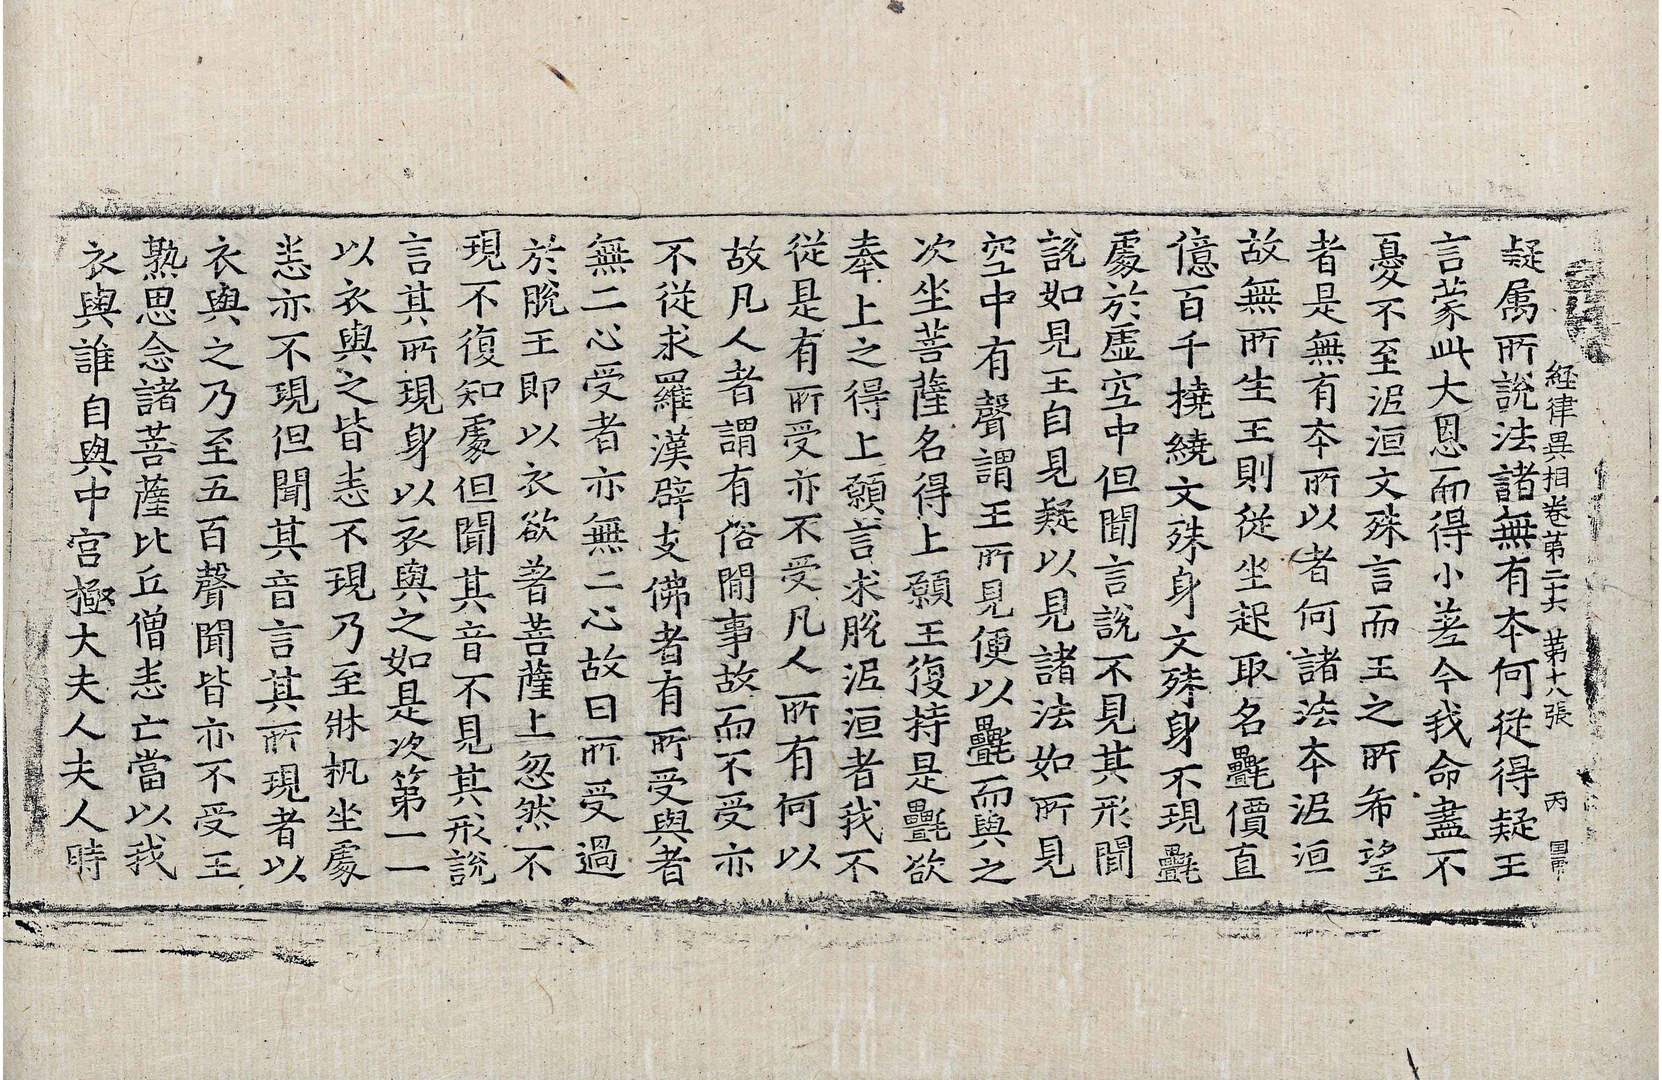 経律異相卷第二十六 第十八張 丙
疑属所說法諸無有本何從得疑王
言蒙此大恩而得小差今我命盡不
憂不至泥洹文殊言而王之所希望
者是無有本所以者何諸法本泥洹
故無所生王則從坐起取名㲲價直
億百千撓繞文殊身文殊身不現㲲
處於虛空中但聞言說不見其形聞
說如見王自見疑以見諸法如所見
空中有聲謂王所見便以㲲而與之
次坐菩薩名得上願王復持是㲲欲
奉上之得上願言求脫泥洹者我不
從是有所受亦不受凡人所有何以
故凡人者謂有俗閒事故而不受亦
不從求羅漢辟支佛者有所受與者
無二心受者亦無二心故曰所受過
於脫王即以衣欲著菩薩上忽然不
現不復知處但聞其音不見其形說
言其所現身以衣與之如是次第一一
以衣與之皆恚不現乃至牀机坐處
恚亦不現但聞其音言其所現者以
衣與之乃至五百聲聞皆亦不受王
熟思念諸菩薩比丘僧恚亡當以我
衣與誰自與中宮極大夫人夫人時